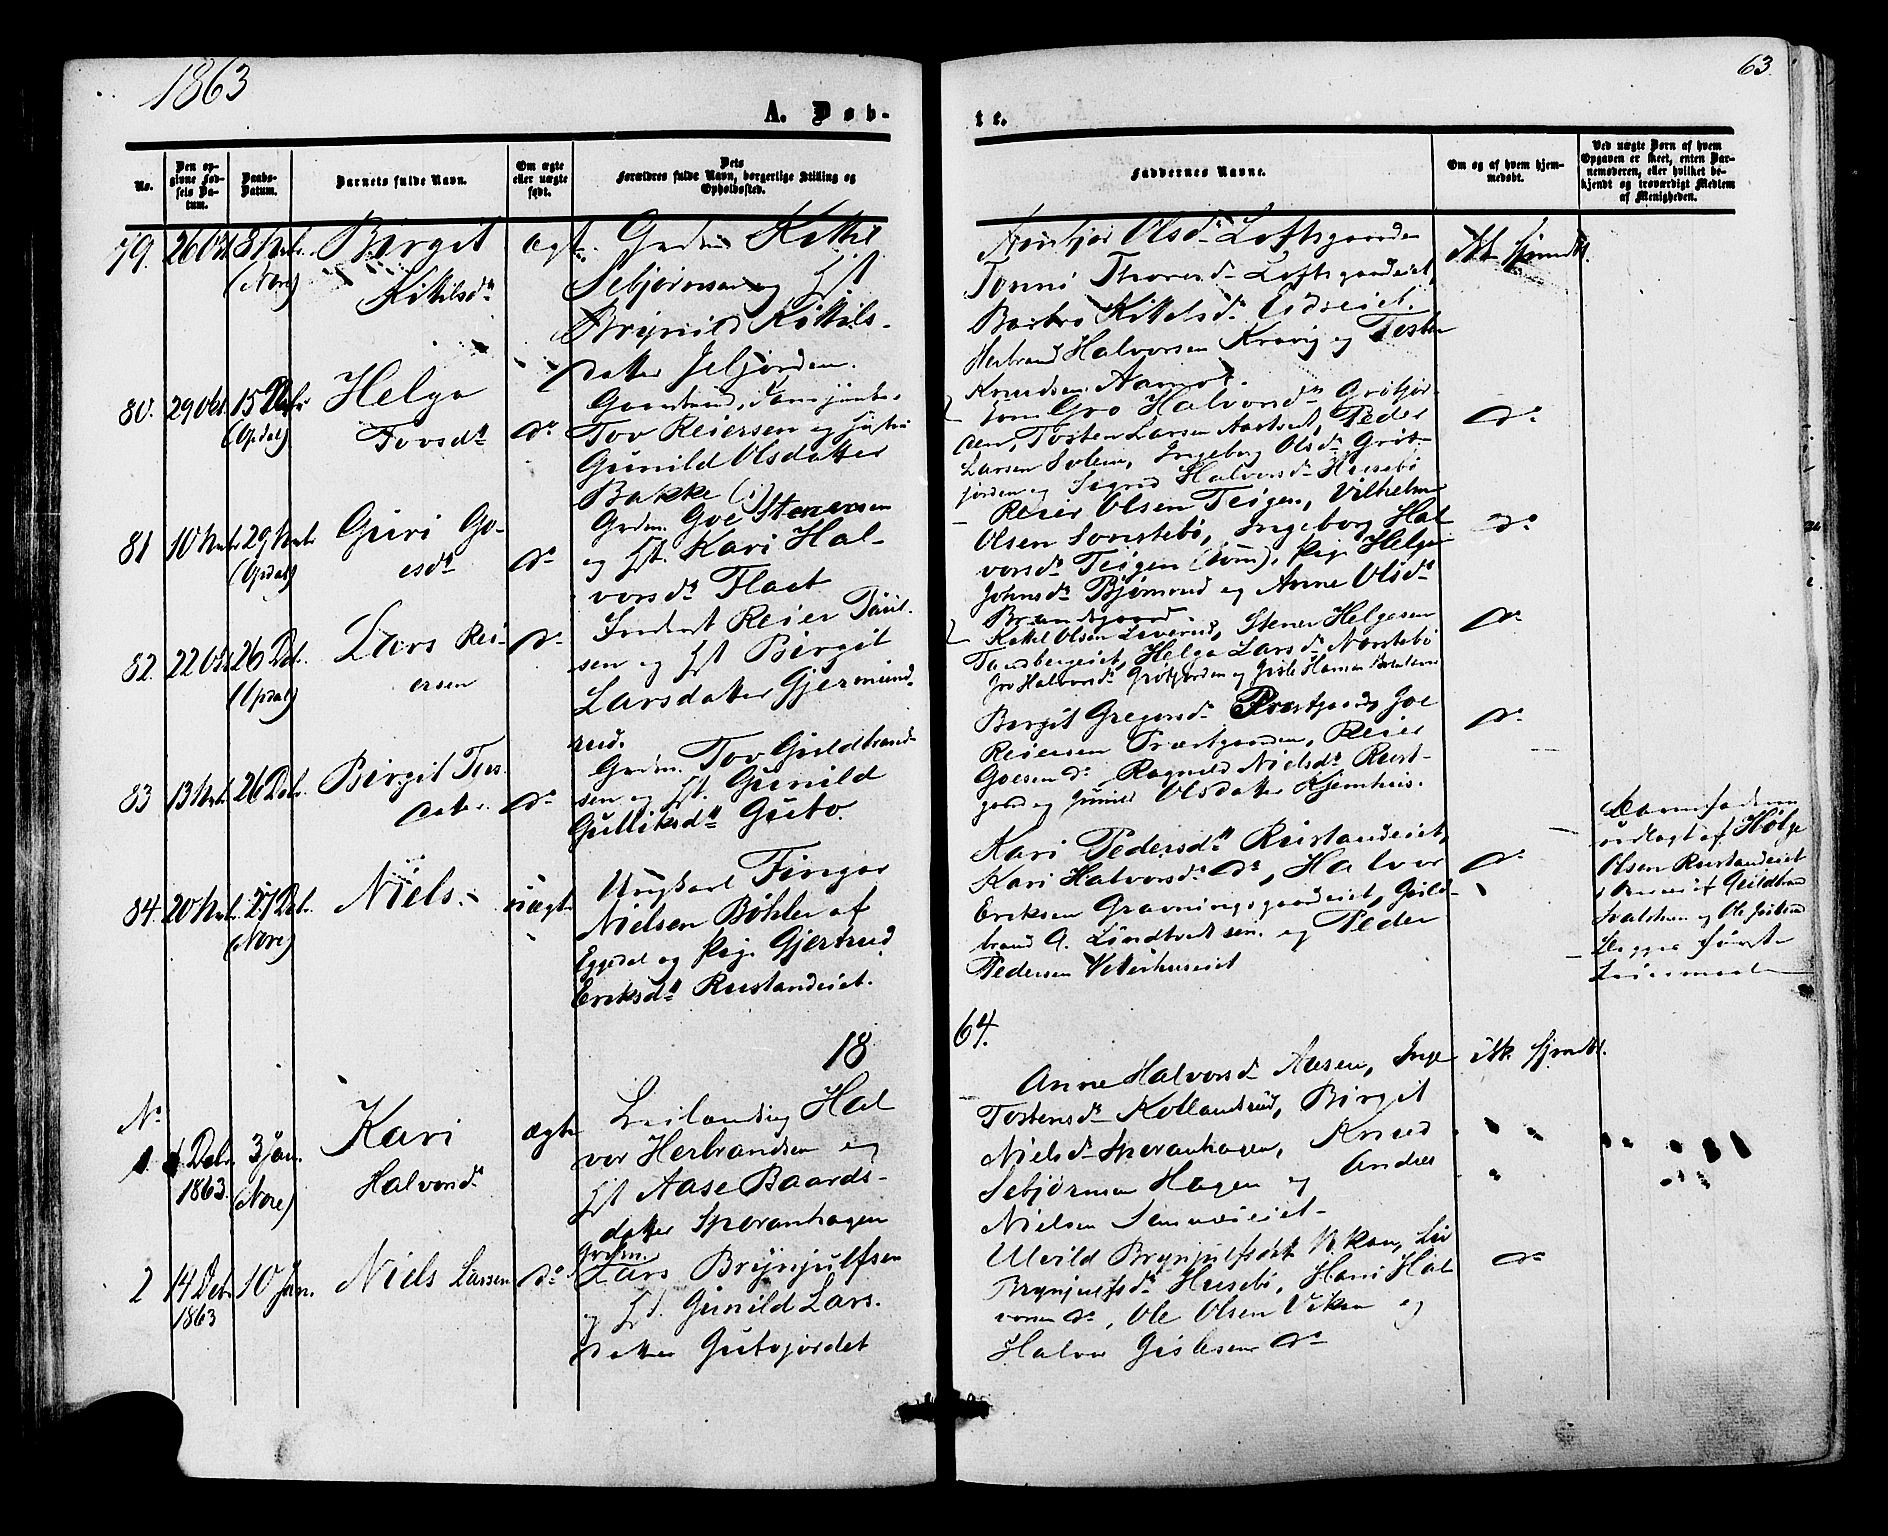 1863
63.
A. Døb-
te.
No.
Den op-
givne Fød-
sels Da-
tum.
Daabs-
Datum.
Barnets fulde Navn.
Om ægte
eller uægte
født.
Dets
Forældres fulde Navn, borgerlige Stilling og
Opholdssted.
Faddernes Navne.
Om og af hvem hjem-
medøbt.
Ved uægte Børn af hvem
Opgaven er skeet, enten Bar-
nemoderen, eller hvilket be-
kjendt og troværdigt Medlem
af Menigheden.
79. 26 Oct.
(Nore)
Birgit
Kittilsdr
ægte
Grdm. Kittil
Sebjørnsen og Hst
Brynild Kittils-
datter Jeljorden.
Olsdr Loftsgaarden
Tonni Thoresdr Loftsgaardeiet,
Barbro Kittelsdr Eidseiet,
Herbrand Halvorsen Kravig og Tosten
Knudsen Aamot.
80. 29 Oct. 15
(Opdal)
Helga
Tovsdr
do
Tov Reiersen og Hustru
Gunild Olsdatter
Bakke (i)
Gro Halvorsdr Grøtjor-
den, Tosten Larsen Aartset, Peder
Larsen Solem, Ingeborg Olsdr Grøt-
jorden og Sigrid Halvorsdr Husebø
do
81 10 Nvbr 29 Nvbr
(Opdal)
Guri Go-
esdr
do
Grdm. Goe Stenersen
og Hst. Kari Hal-
vorsdr Flaat
Reier Olsen Teigen, Vilhelm
Olsen Sønstebø, Ingeborg Hal
vorsdr Teigen (Tom), Pige Helge
Johnsdr Bjømrud og Anne Olsdr
Brandsgaard.
do
82. 22 Oct. 26 Dcb.
(Opdal)
Lars Rei-
ersen
do
Inderst Reier Paul-
sen og Hst Birgit
Larsdatter Gjermund-
rud.
Kittel Olsen Liverud, Stener Helgesen
Tandbergeiet, Helga Larsdr Nørstebø
Gro Halvorsdr Grøtjorden og Gisle Hansen
do
83 13 Nvbr. 26 Dcbr.
Birgit Tovs
datter.
do
Grdm. Tov Guldbrand-
sen og Hst. Gunild
Gulliksdr Guto.
Birgit Gregorsdr Præstgaard, Joe
Reiersen Præstgaarden, Reier
Goesen do Ragnild Nielsdr Rust-
gard og Gunild Olsdatter Kjemhus.
do
84. 20 Nvbr. 27 Dcbr.
(Nore)
Niels.
uægte
Ungkarl Fingar
Nielsen Bøhler af
Eggedal og Pige Gjertrud
Eriksdr Rustandeiet.
Kari Pedersdr Rustandeiet,
Kari Halvorsdr do, Halvor
Eriksen Gravningsgaardeiet, Guld-
brand A. Lindtvedt sen. og Peder
Pedersen Veterhuseiet
do
Barnefaderen
udlagt af Helge
Olsen Rustandeiet
Guldbrand
og Ole
Begge
Leiermaal
18
64.
No
1. Dcbr. 1863. 3 Jan.
(Nore)
Kari
Halvorsdr
ægte
Leilending Hal
vor Herbrandsen og
Hst Aase Baards-
datter Sporanhagen
Anne Halvorsdr Aasen, Inge
Tostensdr Kollandrud, Birgit
Nielsdr Sporanhagen, Knud
Sebjørnsen Hagen og Andres
Nielsen
ik. hjmdt.
2 14 Dcbr 1863 10 Jan.
Niels Larsen
do
Grdm.
Lars Brynjulfsen
og Hst. Gunild Lars-
datter Gutojordet
Ulvild Brynjulfsdr Viken, Liv
Brynjulfsdr Husebø, Hans Hal
vorsen do, Ole Olsen Viken og
Halvor Gislesen do
do